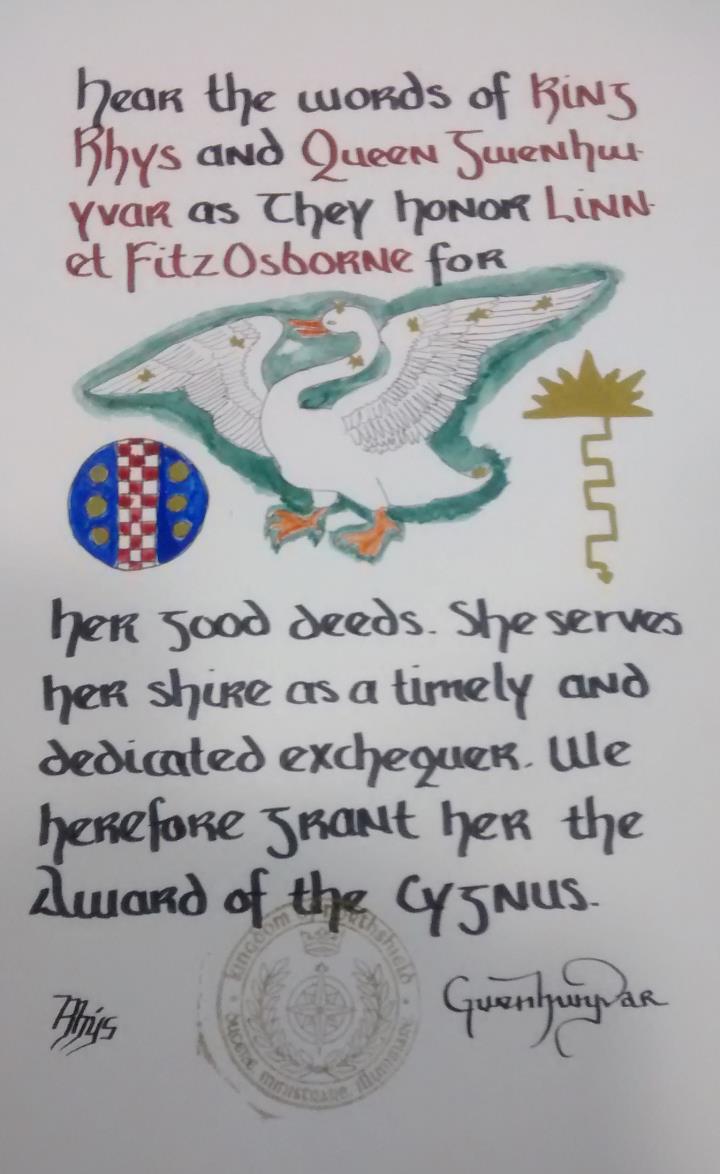 Hear the words of King
Rhys and Queen Gwenhw-
yvar as They honor Linn-
et FitzOsborne for
her good deeds. She serves
her shire as a timely and
dedicated exchequer. We
herefore grant her the
Award of the Cygnus.
Kingdom of Northshield
Ducere Ministrare
Rhys
Gwenhwyvar